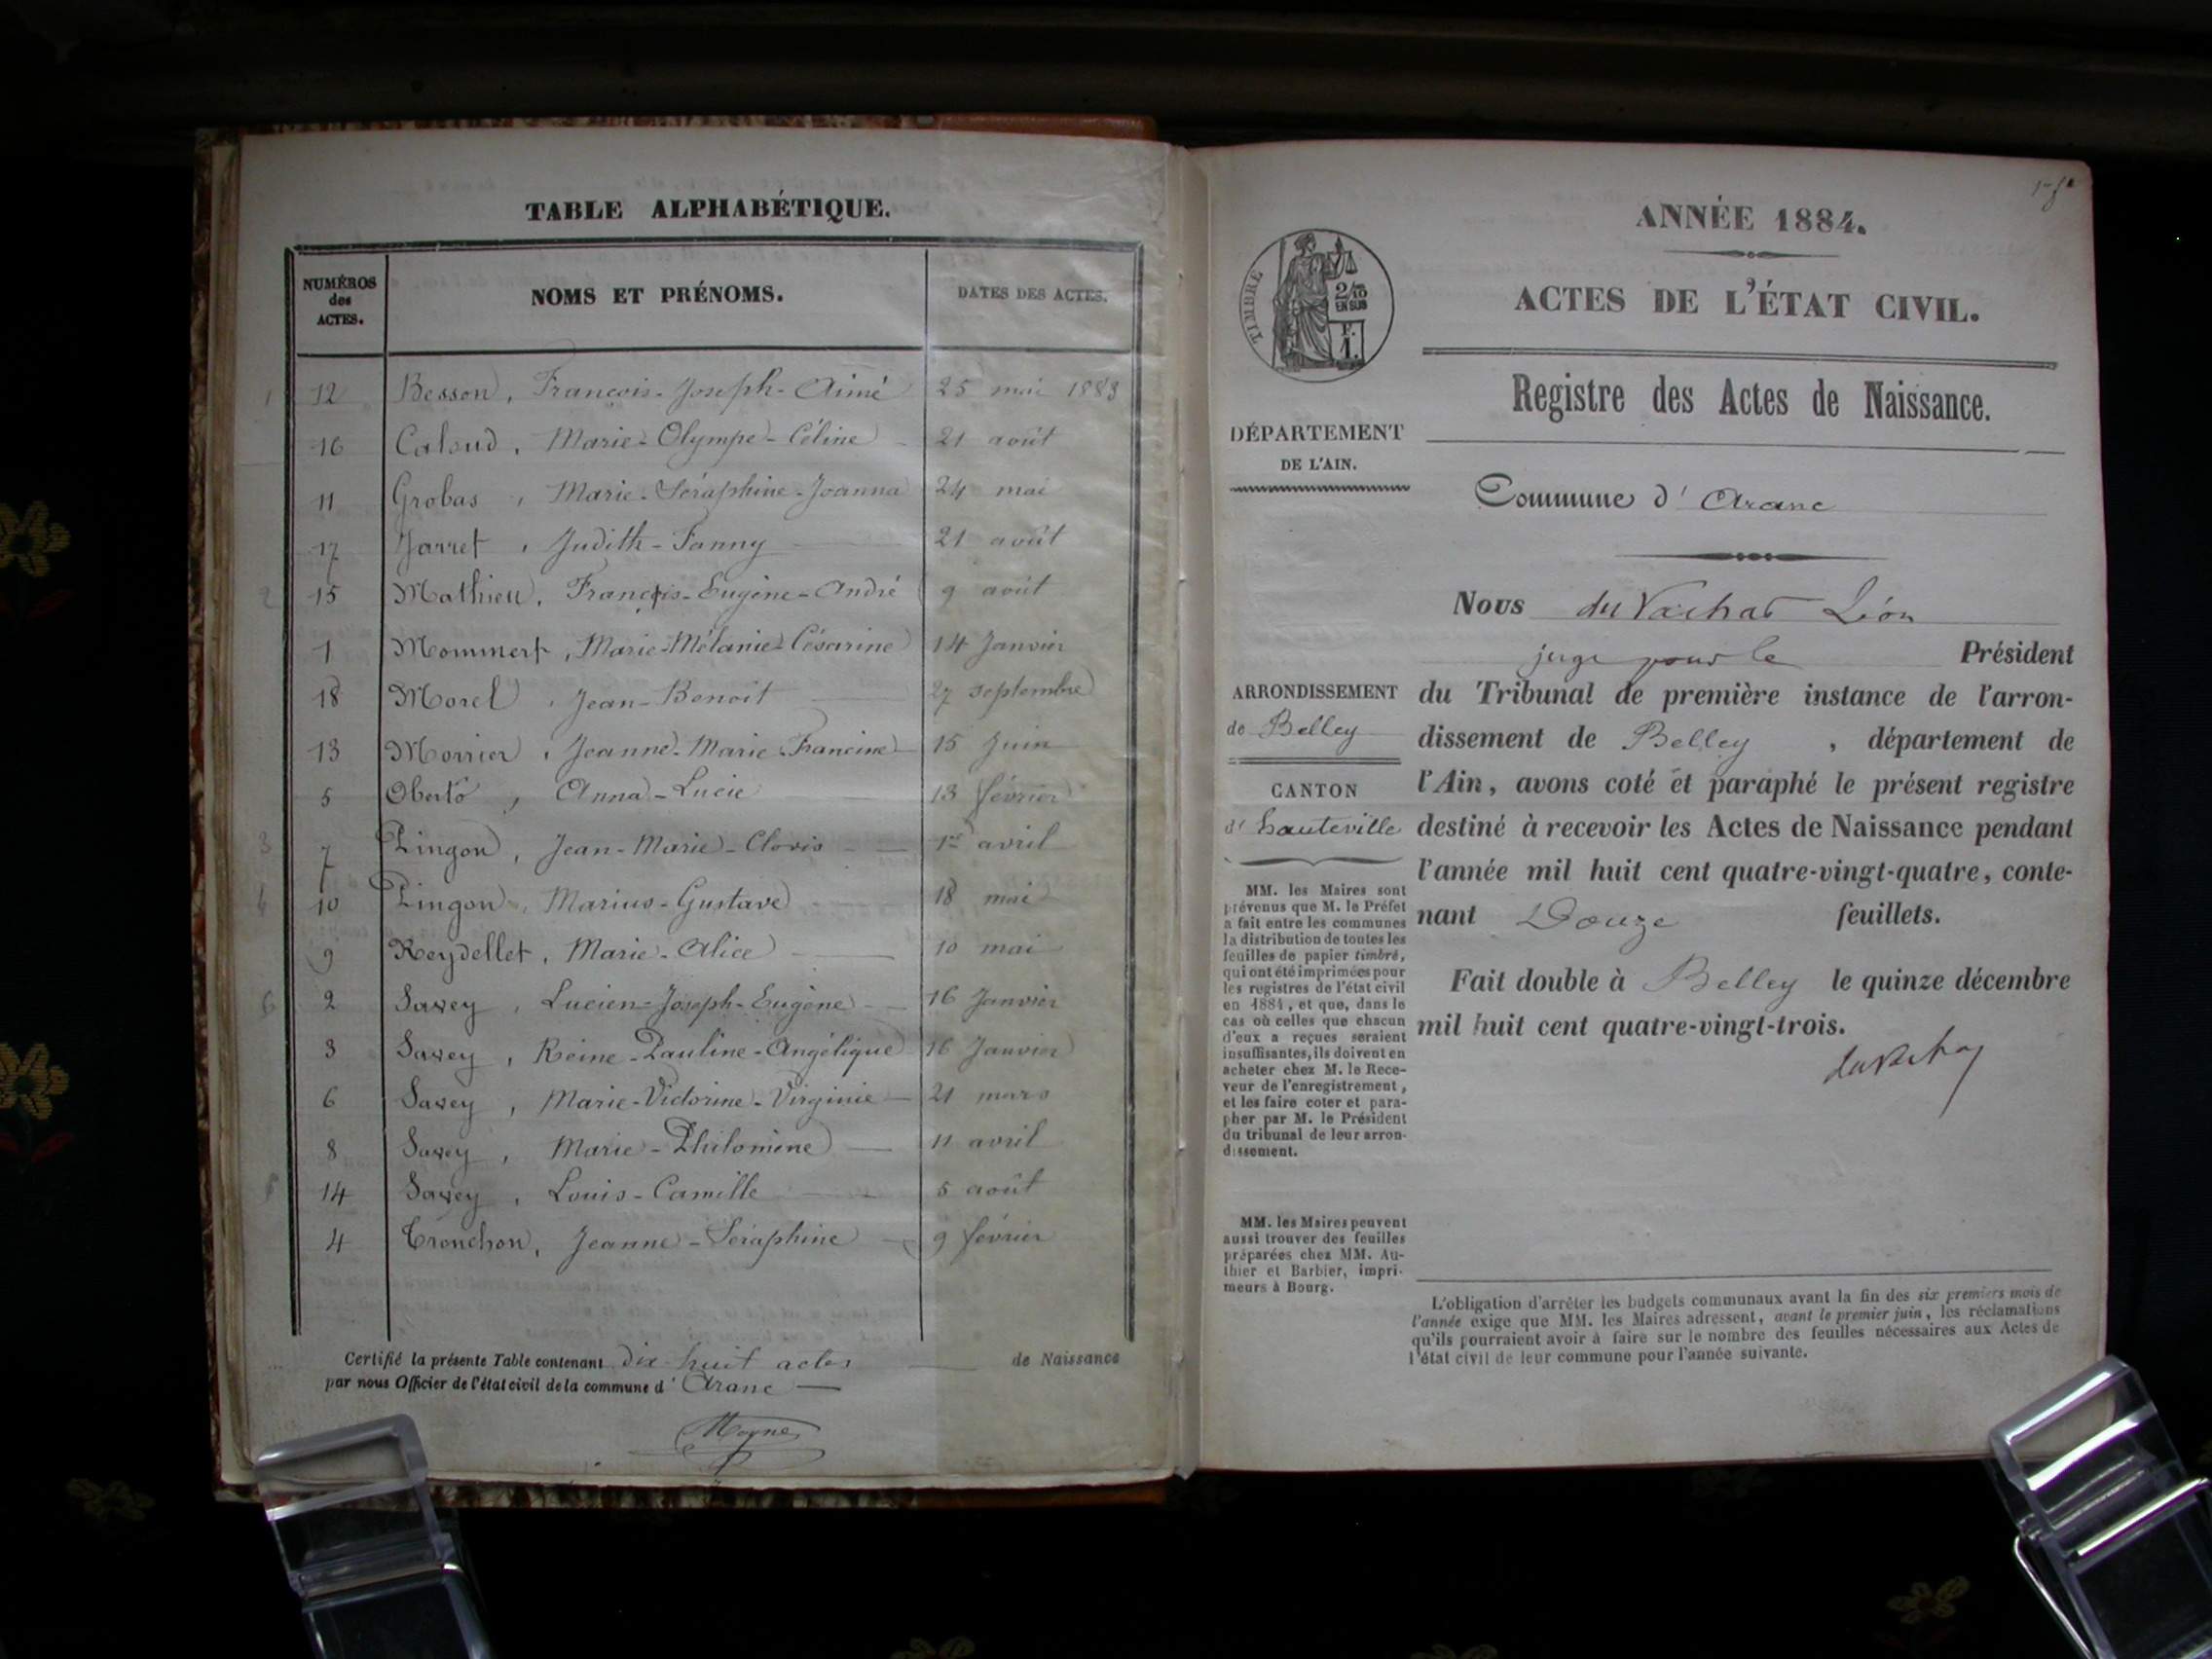 TABLE ALPHABÉTIQUE.
NUMÉROS des ACTES.
NOMS ET PRÉNOMS.
DATES DES ACTES.
1 12 Besson, François-Joseph-Aimé 25 mai 1883
16 Caloud, Marie-Olympe-Céline 21 août
11 Grobas, Marie-Séraphine-Joanna 24 mai
17 Jarret, Judith-Fanny 21 août
2 15 Mathieu, François-Eugène-André 9 août
1 Mommert, Marie-Mélanie-Césarine 14 Janvier
18 Morel, Jean-Benoît 27 septembre
13 Morrier, Jeanne-Marie Francine 15 Juin
5 Oberto, Anna-Lucie 13 février
3 7 Pingon, Jean-Marie-Clovis 1er avril
4 10 Pingon, Marius-Gustave 18 mai
9 Reydellet, Marie-Alice 10 mai
6 2 Savey, Lucien-Joseph-Eugène 16 Janvier
3 Savey, Reine-Pauline-Angélique 16 Janvier
6 Savey, Marie-Victorine-Virginie 21 mars
8 Savey, Marie-Philomène 11 avril
14 Savey, Louis-Camille 5 août
4 Tronchon, Jeanne-Séraphine 9 février
Certifié la présente Table contenant dix-huit actes de Naissance
par nous Officier de l'état civil de la commune d'Aranc
Moyne
ANNÉE 1884.
ACTES DE L'ÉTAT CIVIL.
TIMBRE
2/10
EN SUS
F.
1.
Registre des Actes de Naissance.
DÉPARTEMENT
DE L'AIN.
Commune d'Aranc
Nous du Vachat Léon
juge pour le Président
du Tribunal de première instance de l'arron-
dissement de Belley, département de
l'Ain, avons coté et paraphé le présent registre
destiné à recevoir les Actes de Naissance pendant
l'année mil huit cent quatre-vingt-quatre, conte-
nant Douze feuillets.
Fait double à Belley le quinze décembre
mil huit cent quatre-vingt-trois.
ARRONDISSEMENT
de Belley
CANTON
d'hauteville
MM. les Maires sont
prévenus que M. le Préfet
a fait entre les communes
la distribution de toutes les
feuilles de papier timbré,
qui ont été imprimées pour
les registres de l'état civil
en 1884, et que, dans le
cas où celles que chacun
d'eux a reçues seraient
insuffisantes, ils doivent en
acheter chez M. le Rece-
veur de l'enregistrement,
et les faire coter et para-
pher par M. le Président
du tribunal de leur arron-
dissement.
MM. les Maires peuvent
aussi trouver des feuilles
préparées chez MM. Au-
thier et Barbier, impri-
meurs à Bourg.
L'obligation d'arrêter les budgets communaux avant la fin des six premiers mois de
l'année exige que MM. les Maires adressent, avant le premier juin, les réclamations
qu'ils pourraient avoir à faire sur le nombre des feuilles nécessaires aux Actes de
l'état civil de leur commune pour l'année suivante.